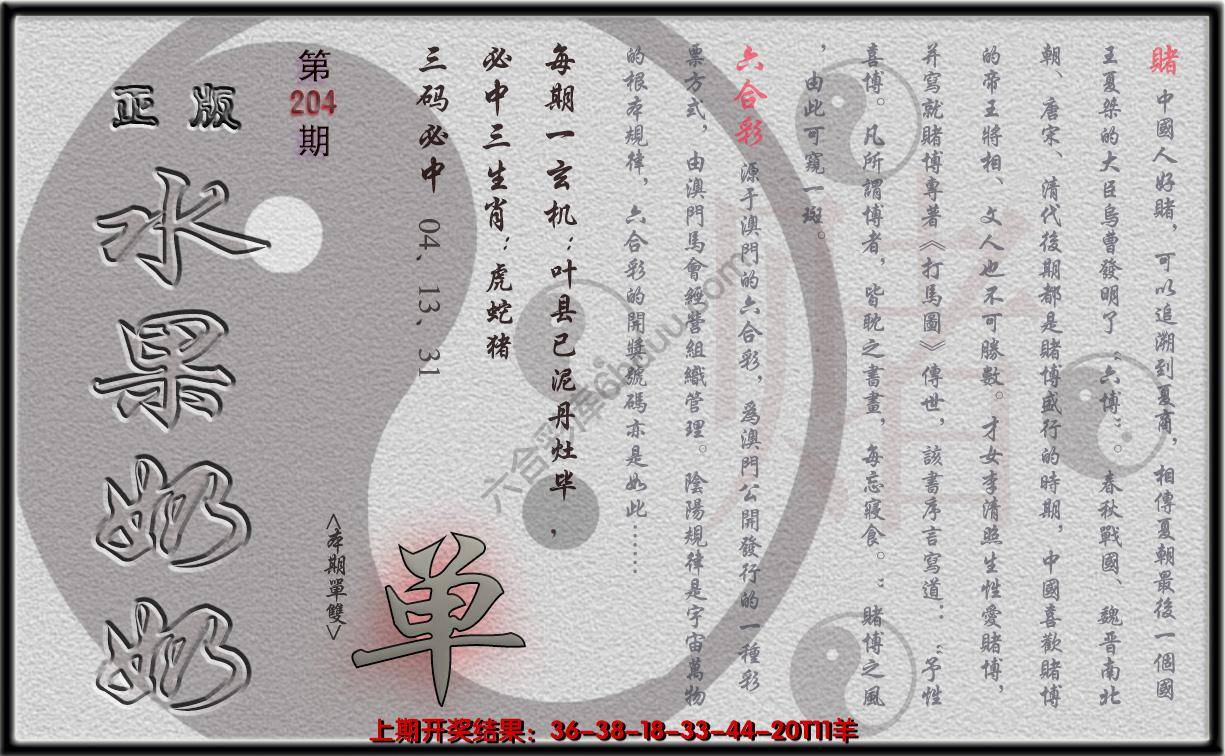 賭 中國人好賭，可以追溯到夏商，相傳夏朝最後一個國
王夏桀的大臣烏曹發明了“六博”。春秋戰國、魏晋南北
朝、唐宋、清代後期都是賭博盛行的時期，中國喜歡賭博
的帝王將相、文人也不可勝數。才女李清照生性愛賭博，
并寫就賭博專著《打馬圖》傳世，該書序言寫道：“予性
喜博。凡所謂博者，皆耽之書畫，每忘寢食。”賭博之風
，由此可窺一斑。
六合彩 源于澳門的六合彩，爲澳門公開發行的一種彩
票方式，由澳門馬會經營組織管理。陰陽規律是宇宙萬物
的根本規律，六合彩的開獎號碼亦是如此……
每期一玄机：叶县已泥丹灶毕，
必中三生肖：虎蛇猪
三码必中 04、13、31
第204期
正版
水果奶奶
<本期單雙>
单
上期开奖结果：36-38-18-33-44-20T11羊